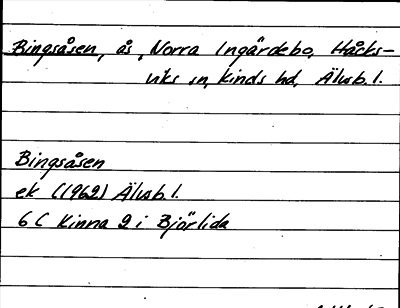 Bingsåsen, ås, Norra Ingärdebo, Håcks-
viks sn, Kinds hd, Älvsb. l.
Bingsåsen
ek (1962) Älvsb. l.
6 C Kinna 2 i Björlida